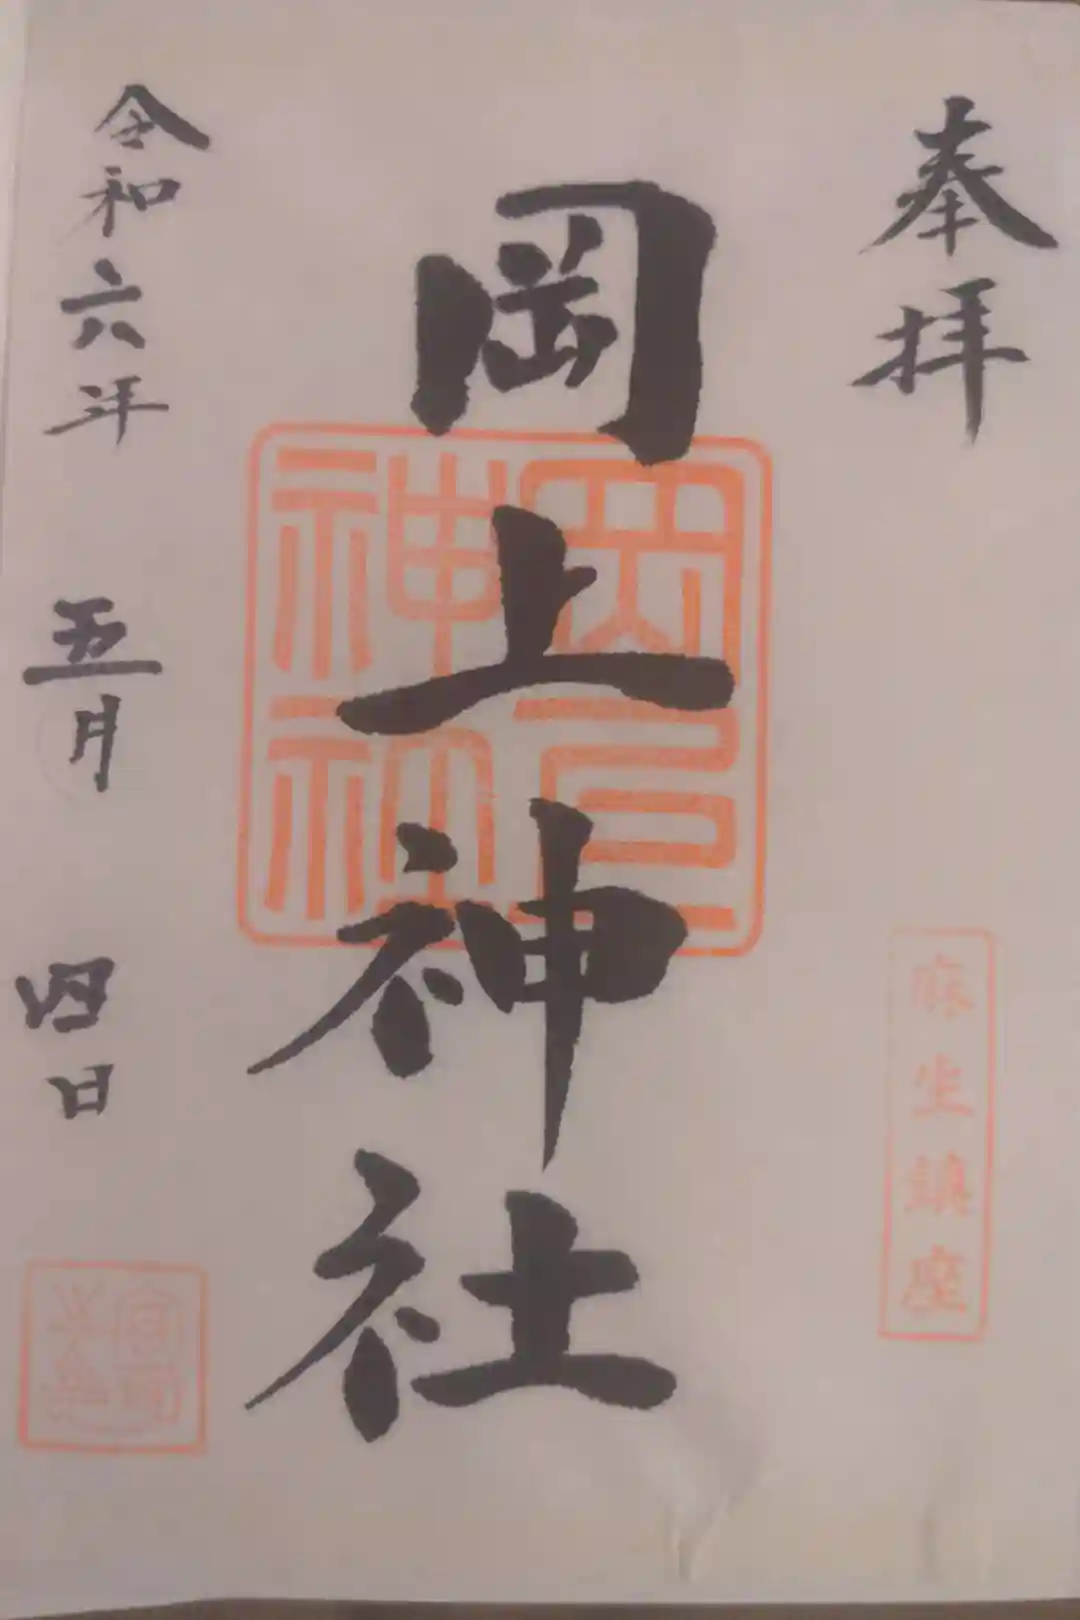 奉拝
麻生鎮座
岡上神社
岡上
神社
令和六年 五月 四日
宮司
之印